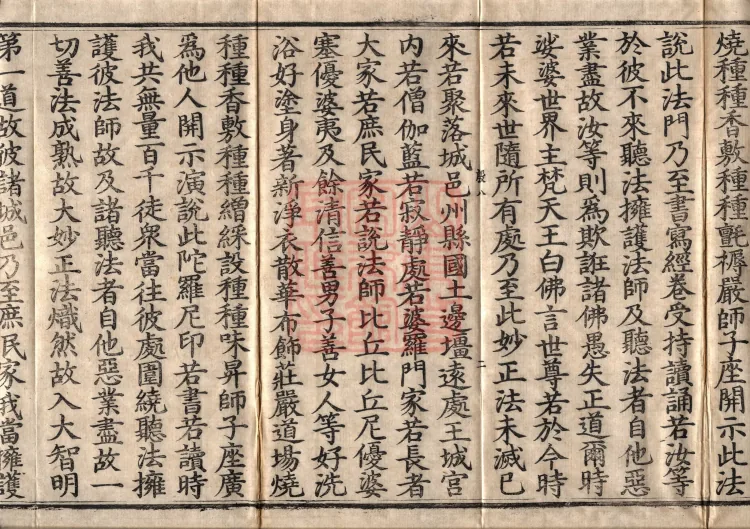 燒種種香敷種種氈褥嚴師子座開示此法
說此法門乃至書寫經卷受持讀誦若汝等
於彼不來聽法擁護法師及聽法者自他惡
業盡故汝等則為欺誑諸佛愚失正道爾時
娑婆世界主梵天王白佛言世尊若於今時
若未來世隨所有處乃至此妙正法未滅已
來若聚落城邑州縣國土邊壃遠處王城宮
內若僧伽藍若寂靜處若婆羅門家若長者
大家若庶民家若說法師比丘比丘尼優婆
塞優婆夷及餘清信善男子善女人等好洗
浴好塗身著新淨衣散華布飾莊嚴道場燒
種種香敷種種繒綵設種種味昇師子座廣
為他人開示演說此陀羅尼印若書若讀時
我共無量百千徒眾當往彼處圍繞聽法擁
護彼法師故及諸聽法者自他惡業盡故一
切善法成熟故大妙正法熾然故入大智明
第一道故彼諸城邑乃至庶民家我當擁護
二